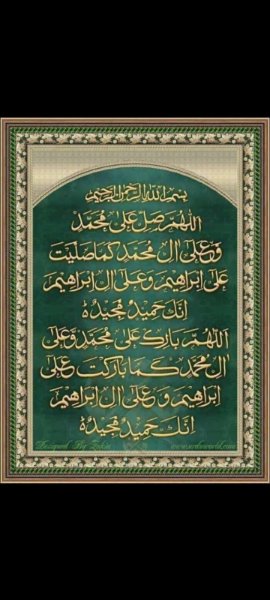 بسم الله الرحمن الرحيم
اللهم صل على محمد
وعلى ال محمد كما صليت
على ابراهيم وعلى ال ابراهيم
انك حميد مجيد
اللهم بارك على محمد وعلى
ال محمد كما باركت على
ابراهيم وعلى ال ابراهيم
انك حميد مجيد
Designed By